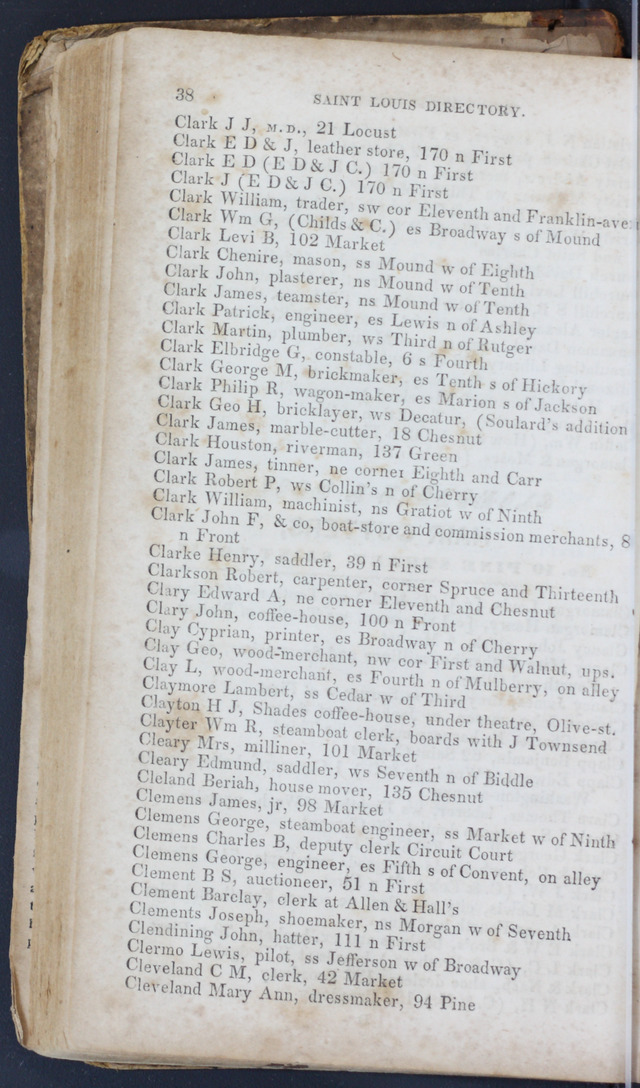 38 SAINT LOUIS DIRECTORY.
Clark J J, M.D., 21 Locust
Clark E D & J, leather store, 170 n First
Clark E D (E D & J C.) 170 n First
Clark J (E D & J C.) 170 n First
Clark William, trader, sw cor Eleventh and Franklin-aven
Clark Wm G, (Childs & C.) es Broadway s of Mound
Clark Levi B, 102 Market
Clark Chenire, mason, ss Mound w of Eighth
Clark John, plasterer, ns Mound w of Tenth
Clark James, teamster, ns Mound w of Tenth
Clark Patrick, engineer, es Lewis n of Ashley
Clark Martin, plumber, ws Third n of Rutger
Clark Elbridge G, constable, 6 s Fourth
Clark George M, brickmaker, es Tenth s of Hickory
Clark Philip R, wagon-maker, es Marion s of Jackson
Clark Geo H, bricklayer, ws Decatur, (Soulard's addition
Clark James, marble-cutter, 18 Chesnut
Clark Houston, riverman, 137 Green
Clark James, tinner, ne corner Eighth and Carr
Clark Robert P, ws Collin's n of Cherry
Clark William, machinist, ns Gratiot w of Ninth
Clark John F, & co, boat-store and commission merchants, 8
n Front
Clarke Henry, saddler, 39 n First
Clarkson Robert, carpenter, corner Spruce and Thirteenth
Clary Edward A, ne corner Eleventh and Chesnut
Clary John, coffee-house, 100 n Front
Clay Cyprian, printer, es Broadway n of Cherry
Clay Geo, wood-merchant, nw cor First and Walnut, ups.
Clay L, wood-merchant, es Fourth n of Mulberry, on alley
Claymore Lambert, ss Cedar w of Third
Clayton H J, Shades coffee-house, under theatre, Olive-st.
Clayter Wm R, steamboat clerk, boards with J Townsend
Cleary Mrs, milliner, 101 Market
Cleary Edmund, saddler, ws Seventh n of Biddle
Cleland Beriah, house mover, 135 Chesnut
Clemens James, jr, 98 Market
Clemens George, steamboat engineer, ss Market w of Ninth
Clemens Charles B, deputy clerk Circuit Court
Clemens George, engineer, es Fifth s of Convent, on alley
Clement B S, auctioneer, 51 n First
Clement Barclay, clerk at Allen & Hall's
Clements Joseph, shoemaker, ns Morgan w of Seventh
Clendining John, hatter, 111 n First
Clermo Lewis, pilot, ss Jefferson w of Broadway
Cleveland C M, clerk, 42 Market
Cleveland Mary Ann, dressmaker, 94 Pine